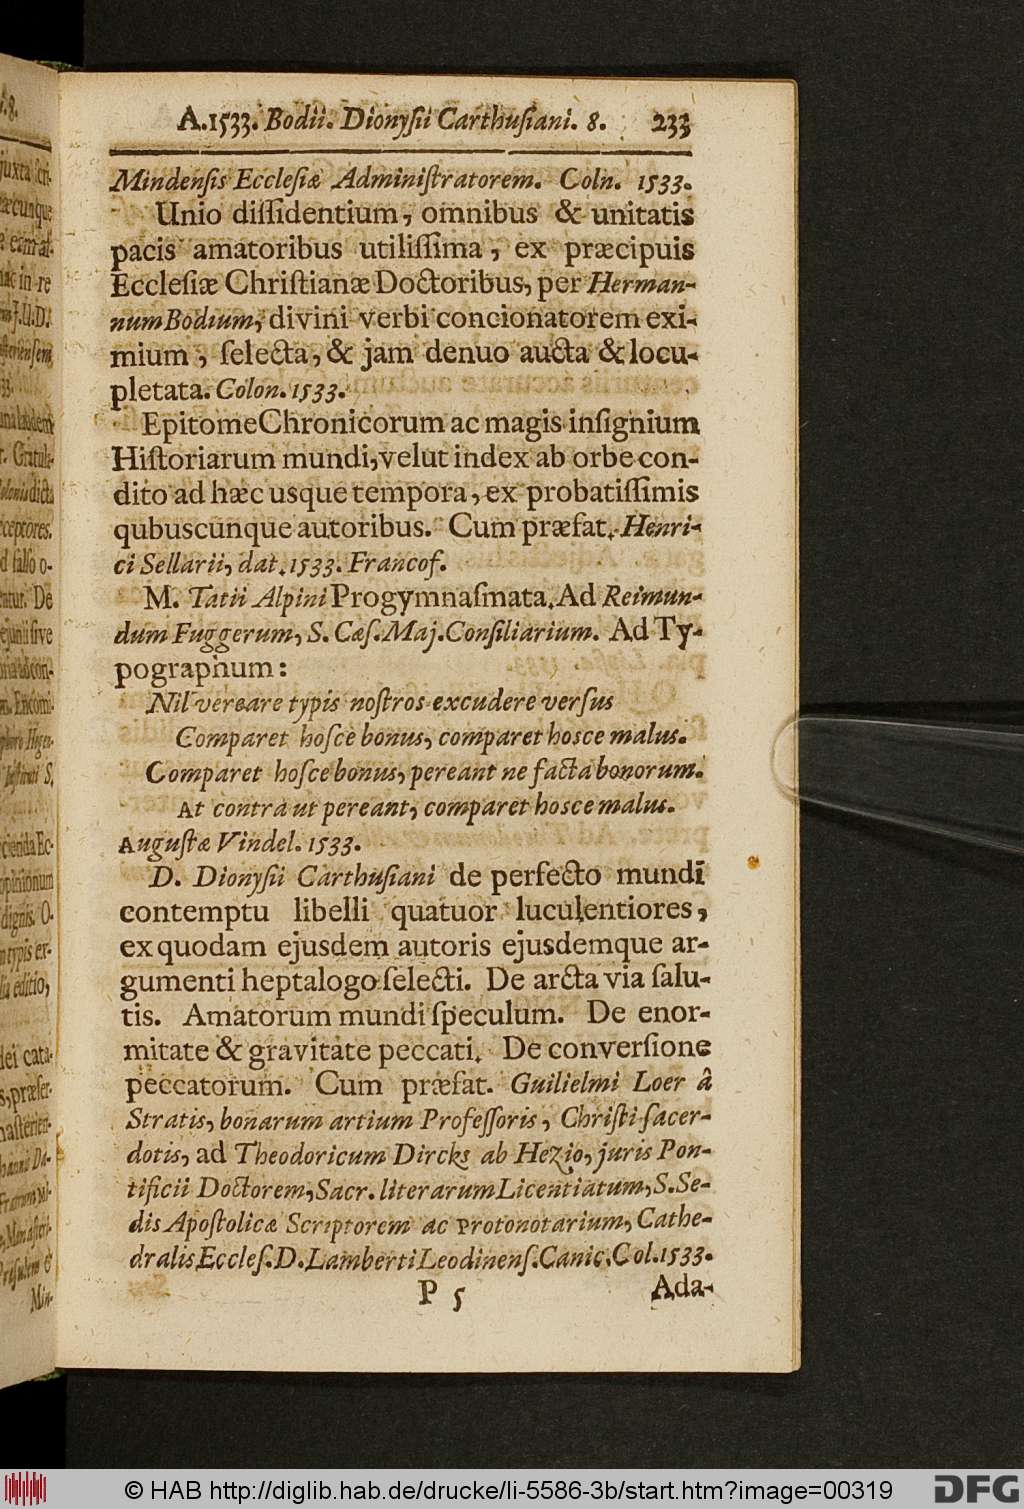 A.1533. Bodii. Dionyſii Carthuſiani. 8. 233
Mindenſis Eccleſiæ Adminiſtratorem. Coln. 1533.
Unio diſſidentium, omnibus & unitatis
pacis amatoribus utiliſſima, ex præcipuis
Eccleſiæ Chriſtianæ Doctoribus, per Herman-
num Bodium, divini verbi concionatorem exi-
mium, ſelecta, & jam denuo aucta & locu-
pletata. Colon. 1533.
Epitome Chronicorum ac magis inſignium
Hiſtoriarum mundi, velut index ab orbe con-
dito ad hæc usque tempora, ex probatiſſimis
qubuscunque autoribus. Cum præfat. Henri-
ci Sellarii, dat. 1533. Francof.
M. Tatii Alpini Progymnaſmata. Ad Reimun-
dum Fuggerum, S. Cæſ. Maj. Conſiliarium. Ad Ty-
pographum:
Nil vereare typis noſtros excudere verſus
Comparet hoſce bonus, comparet hosce malus.
Comparet hoſce bonus, pereant ne facta bonorum.
At contrà ut pereant, comparet hosce malus.
Auguſtæ Vindel. 1533.
D. Dionyſii Carthuſiani de perfecto mundi
contemptu libelli quatuor luculentiores,
ex quodam ejusdem autoris ejusdemque ar-
gumenti heptalogo ſelecti. De arcta via ſalu-
tis. Amatorum mundi ſpeculum. De enor-
mitate & gravitate peccati. De converſione
peccatorum. Cum præfat. Guilielmi Loer â
Stratis, bonarum artium Profeſſoris, Chriſti ſacer-
dotis, ad Theodoricum Dircks ab Hezio, juris Pon-
tificii Doctorem, Sacr. literarum Licentiatum, S. Se-
dis Apoſtolicæ Scriptorem ac Protonotarium, Cathe-
dralis Eccleſ. D. Lamberti Leodinenſ. Canic. Col. 1533.
P 5 Ada-
© HAB http://diglib.hab.de/drucke/li-5586-3b/start.htm?image=00319
DFG